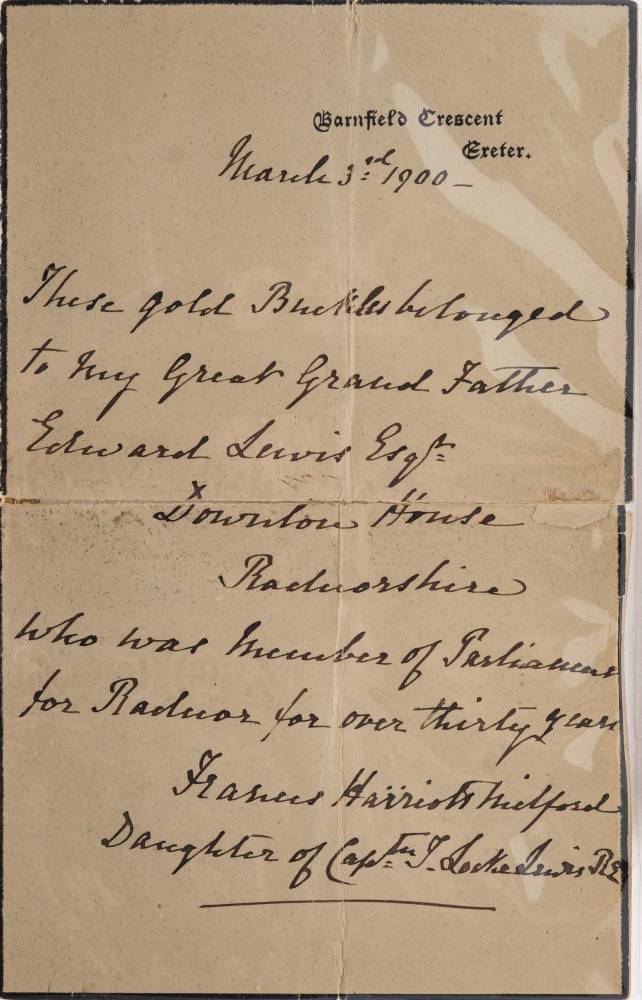 Barnfield Crescent
Exeter.
March 3rd 1900 –
These gold Buckles belonged
to my Great Grand Father
Edward Lewis Esqre
x
Downton House
Radnorshire
who was Member of Parliament
for Radnor for over thirty years
Frances Harriott Milford
Daughter of Captn T. Locke Lewis RE